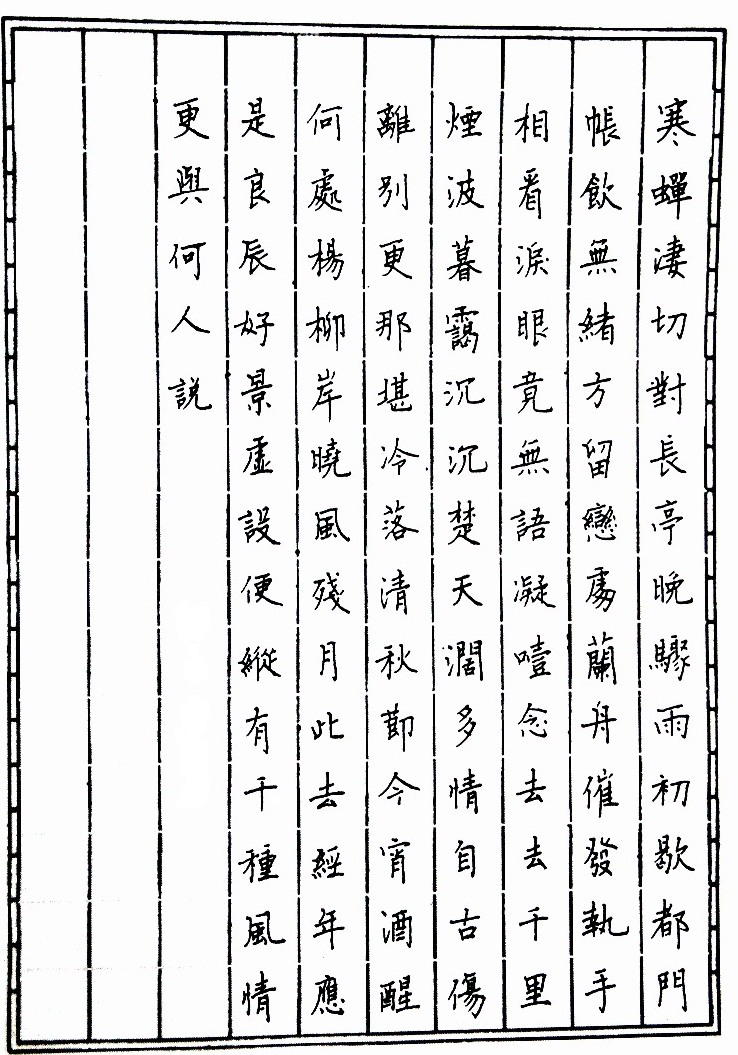 寒蟬淒切對長亭晚驟雨初歇都門
帳飲無緒方留戀處蘭舟催發執手
相看淚眼竟無語凝噎念去去千里
煙波暮靄沉沉楚天濶多情自古傷
離別更那堪冷落清秋節今宵酒醒
何處楊柳岸曉風殘月此去經年應
是良辰好景虛設便縱有千種風情
更與何人説